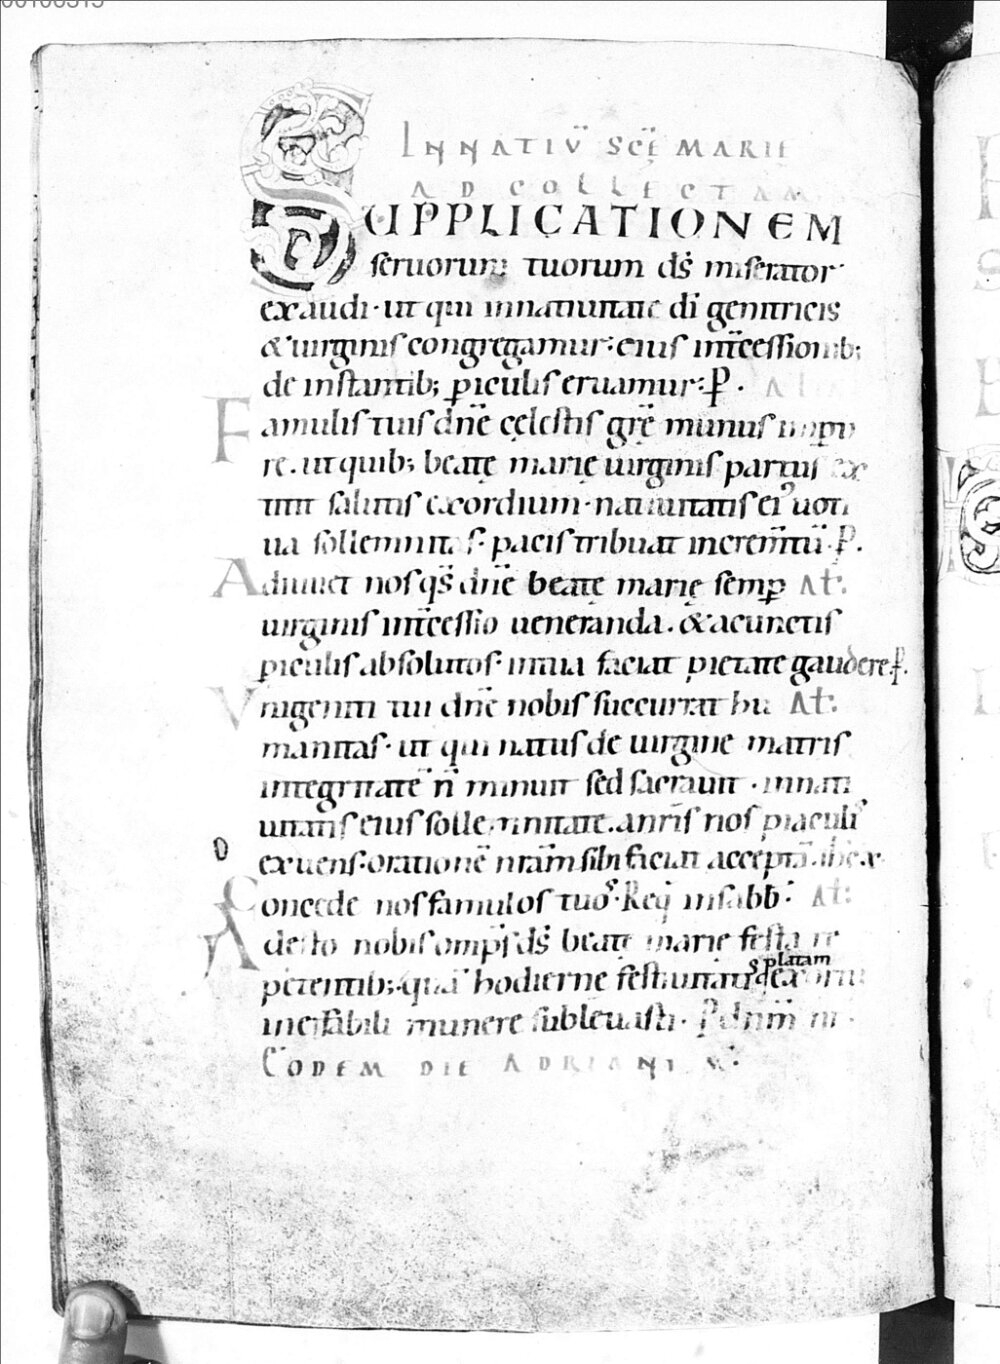 00100515
IN NATIU̅ SCE̅ MARIE
AD COLLECTAM
SUPPLICATIONEM
seruorum tuorum ds̅ miserator·
exaudi· ut qui innatiuitate di̅ genitricis
& uirginis congregamur: eius int̅cessionib;
de instantib; ꝑiculis eruamur: P̱·
Famulis tuis dn̅e cęlestis gr̅ę munus inꝑti
re. ut quib; beatę marię uirginis partus ex
titit salutis exordium· natiuitatis ei᾽ uoti
ua sollemnitas· pacis tribuat increm̅tu̅· P̱.
Adiuuet nos qs̅ dn̅e beatę marię semꝑ At̵:
uirginis int̅cessio ueneranda. & acunctis
piculis absolutos· intua faciat pietate gaudere. P̱.
Vnigeniti tui dn̅e nobis succurrat hu At̵:
manitas· ut qui natus de uirgine matris
integritate̅ n̅ minuit sed sacrauit· innati
uitatis eius sollemnitate. anr̅is nos piaculi᾽
exuens· oratione̅ nr̅am sibi faciat accepta̅.
Concede nos famulos tuo᾽· Req̅ insabb: At̵:
Adesto nobis omps̅ ds̅ beatę marię festa re
platam
petentib;· qua̅ hodierne festiuitatis de ex ortu
ineffabili munere subleuasti· P dn̅m̅ nr̅·
EODEM DIE ADRIANI